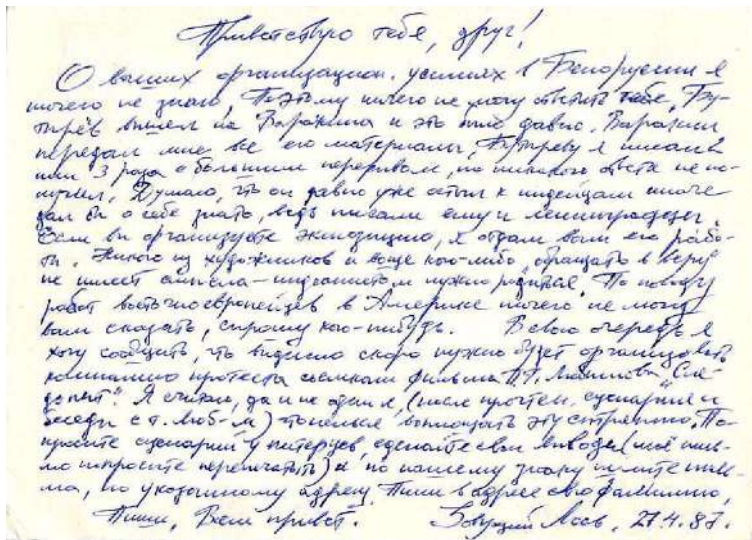 Приветствую тебя, друг!
О ваших организацион. усилиях в Белоруссии я
ничего не знаю, Поэтому ничего не могу ответить тебе, Бу-
тырёв вышел на Воронина и это было давно. Воронин
передал мне все его материалы, Бутыреву я писал 2
или 3 раза с большим перерывом, но никакого ответа не по-
лучил, Думаю, что он давно уже остыл к индейцам иначе
дал бы о себе знать, ведь писали ему и ленинградцы.
Если вы организуете экспозицию, я отдам вам его рабо-
ты. Никого из художников и вообще кого-либо, обращать в веру
не имеет смысла - индеанистом нужно родиться. По поводу
работ восточноевропейцев в Америке ничего не могу
вам сказать, спрошу кого-нибудь. В свою очередь я
хочу сообщить, что видимо скоро нужно будет организовать
кампанию протеста съёмкам фильма "Сле-
допыт". Я считаю, да и не один я, (после прочтен. сценария и
беседы с т. Люб-м) что нельзя воплощать эту стряпню. По-
просите сценарий у питерцев, сделайте свои выводы (моё пись-
мо попросите перепечатать) и по нашему знаку шлите пись-
ма, по указанному адресу. Пиши в адресе свою фамилию,
Пиши, Всем привет. Зовущий Лось, 27.4.87.